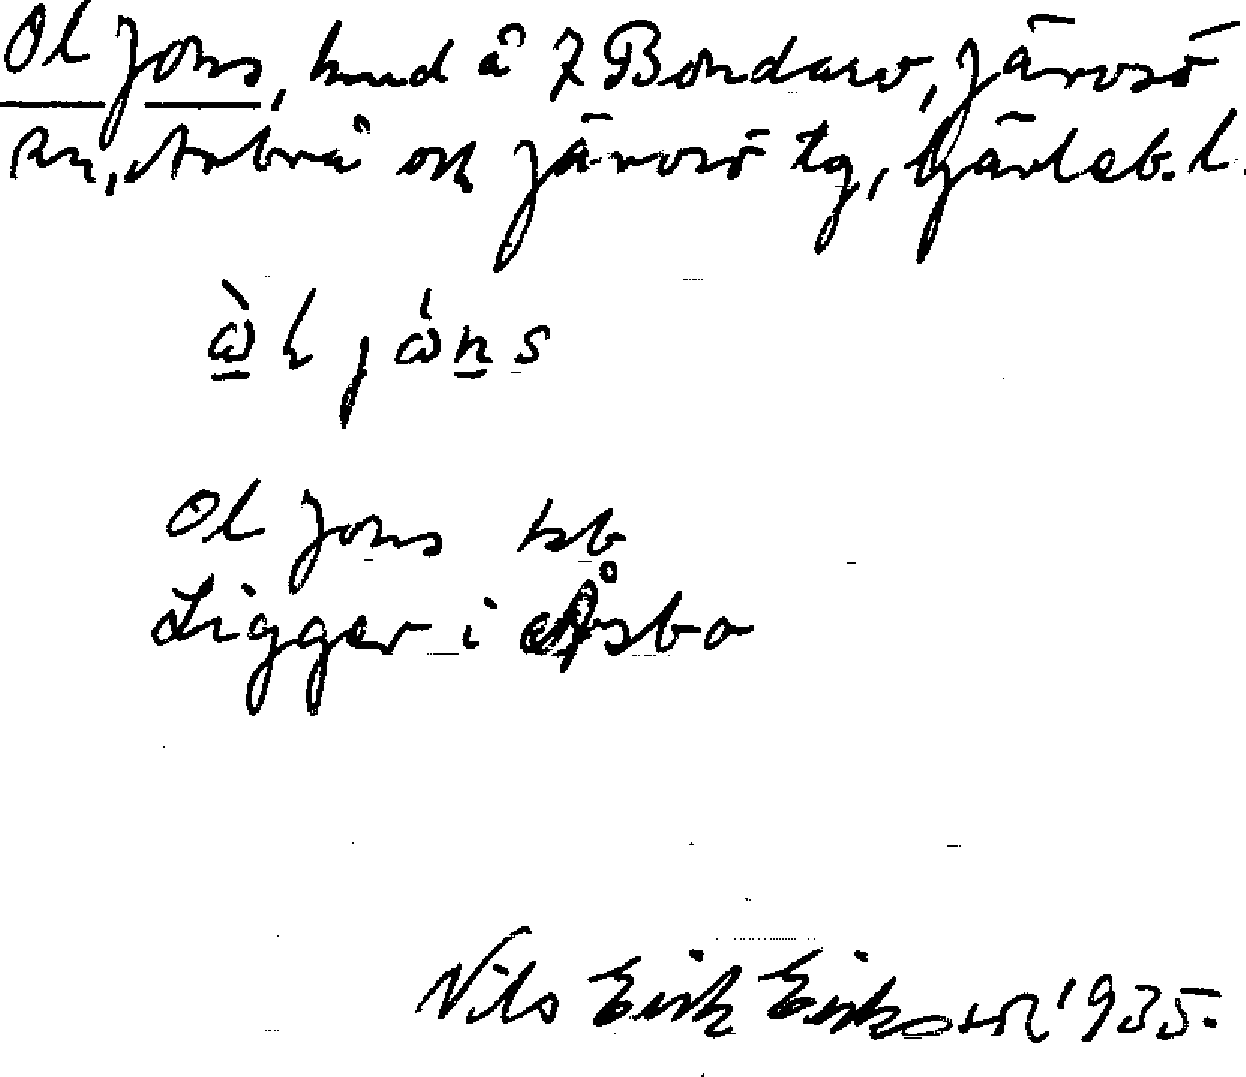 Ol Jons, hmd å 7 Bondarv, Järvsö
sn, Arbrå och Järvsö tg, Gävleb. l.
ὼl jώns
Ol Jons hb
Ligger i Åsbo
Nils Erik Eriksson 1935.